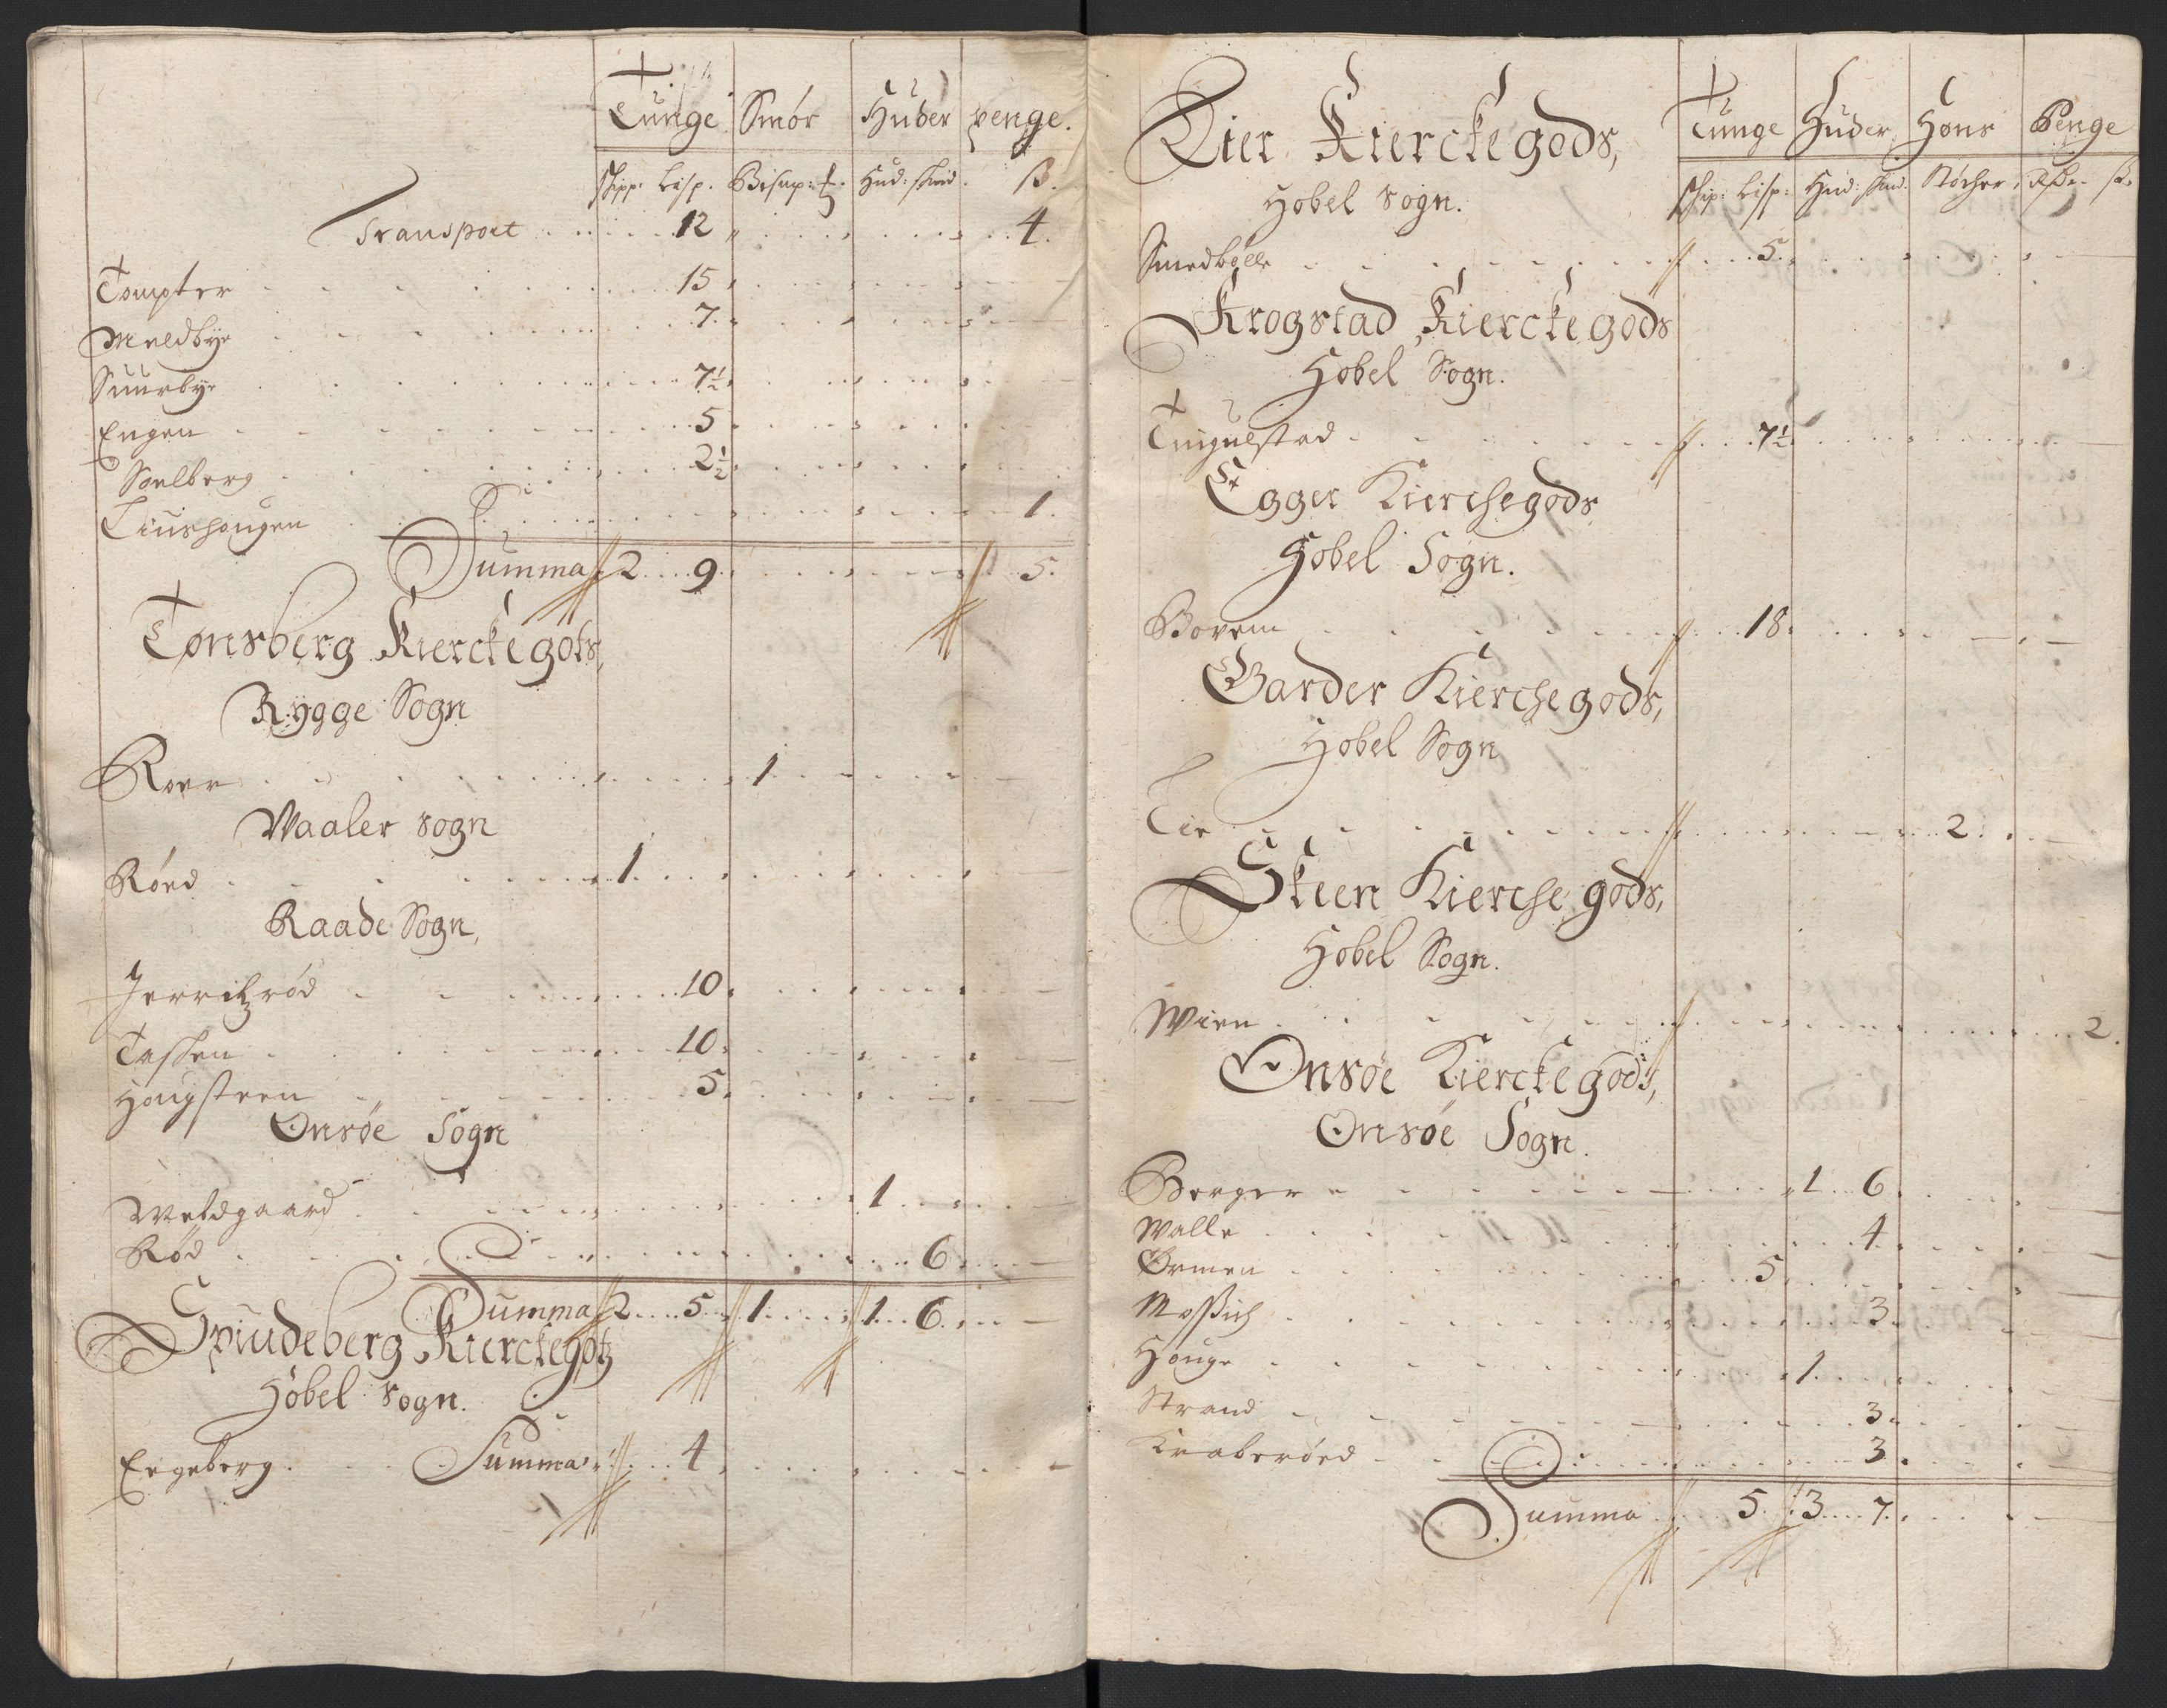 Tunge Smør Huder penge.
skipp: Lisp. Bismp: Hud: skind. ß.
Transport 12 4.
Tompter 15
Meldbye 7
Suurbye 7½
Engen 5
Soelberg 2½
Liushougen 1.
Summa 2 9 5.
Tønsberg Kierckegots,
Rygge Sogn
Roer 1
Waaler sogn
Röed 1
Raade Sogn,
Jerritzröd 10
Tassen 10
Hougsteen 5
Onsøe Sogn
Weldgaard 1
Röd 6
Summa 2 5 1 1 6
Spiudeberg Kierckegotz
Hobel sogn.
Ergeberg. Summa 4
Tier Kierckegods,
Tunge Huder Høns Penge
Hobel sogn.
skip: Lisp: Hud: skind. Støcher Rdr. ß.
Smedbølle 5
Krogstad Kierckegods
Hobel Sogn.
Tingulstad 7½
Egger Kierchegods
Hobel Sogn.
Bovem 18
Garder Kierchegods,
Hobel Sogn
Tie 2
Skien Kierche gods,
Hobel Sogn.
Wien 2.
Onsøe Kierckegods,
Onsøe Sogn.
Borger 1 6
Walle 4
Ørmen 5
Moßich 3
Houge 1
Strand 3
Kraberöed 3
Summa 5 3 7